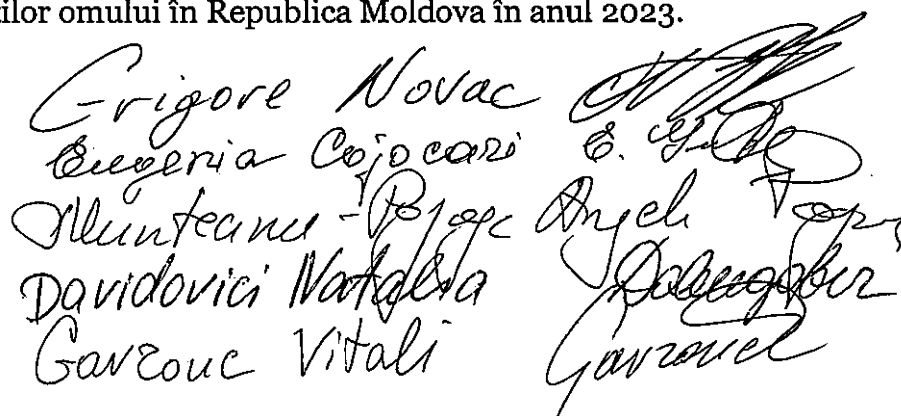 ților omului în Republica Moldova în anul 2023.
Grigore Novac
Eugenia Cojocari E.
Munteanu-Pojoga Angela
Davidovici Natalia
Gavrouc Vitali Gavrouc